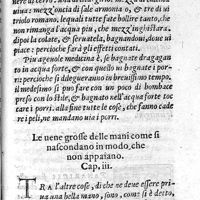 uiua: mezz'oncia di sale armonia o, & tre di ui
triolo romano, lequali tutte fate bollire tanto, che
non rimanga d'acqua piu, che mezz'inghistara.
dipoi la colate, & seruatela, bagnandoui, doue ui
piace: percioche farà gli effetti contati.
Piu ageuole medicina è, se bagnate dragagan
to in acqua forte, & con quello ui bagnate i por
ri: percioche si dilegueranno in breuissimo tempo.
il medesimo si può fare con un poco di bombace
preso con lo stile, & bagnato nell'acqua forte toc
cando i porri. alle fin tutte le cose, che fanno cade
re i peli, ne mandano uia i porri.
Le uene grosse delle mani come si
nascondano in modo, che
non appaiano.
Cap. iii.
TRA l'altre cose, di che ne deue essere pri
ua una bella mano, sono, come si è detto,